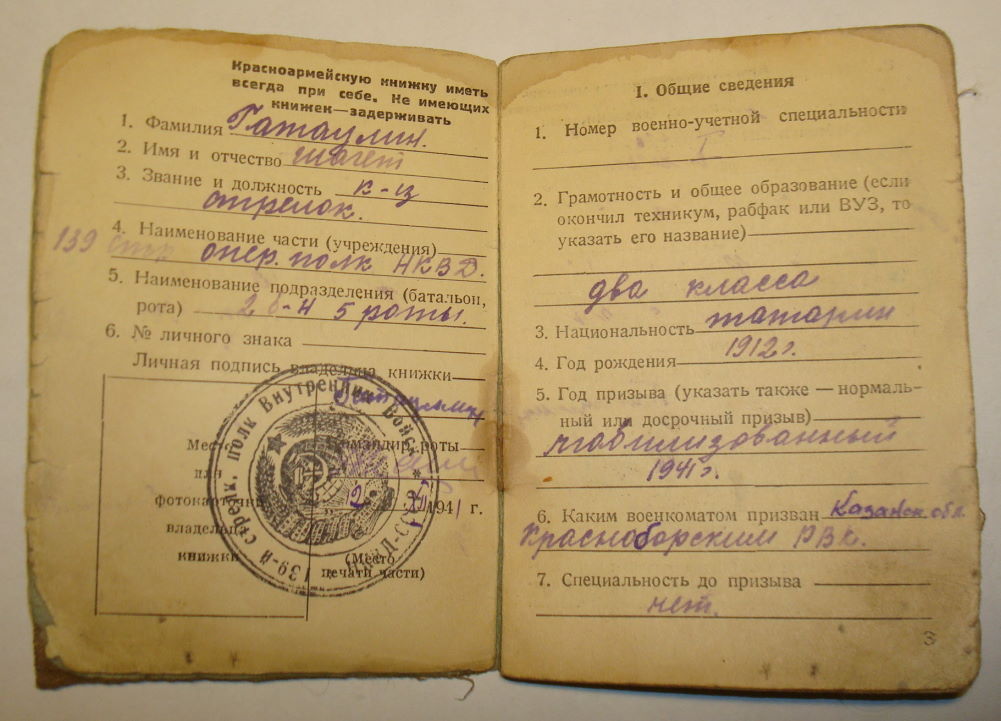 Красноармейскую книжку иметь
всегда при себе. Не имеющих
книжек—задерживать
1. Фамилия Гатаулин.
2. Имя и отчество
3. Звание и должность к-ц
стрелок.
4. Наименование части (учреждения)
139 стр опер. полк НКВД.
5. Наименование подразделения (батальон,
рота) 2 б-н 5 роты.
6. № личного знака
Личная подпись владельца книжки
Гатауллин
Место
для
фотокарточки
владельца
книжки
Командир роты
12 1941 г.
(Место
печати части)
139-й стрелк. полк Внутренних Войск НКВД-СССР
I. Общие сведения
1. Номер военно-учетной специальности
I
2. Грамотность и общее образование (если
окончил техникум, рабфак или ВУЗ, то
указать его название)
два класса
3. Национальность татарин
4. Год рождения 1912 г.
5. Год призыва (указать также — нормаль-
ный или досрочный призыв)
мобилизованный
1941 г.
6. Каким военкоматом призван Казанск. обл.
Красноборским РВк.
7. Специальность до призыва
нет.
3